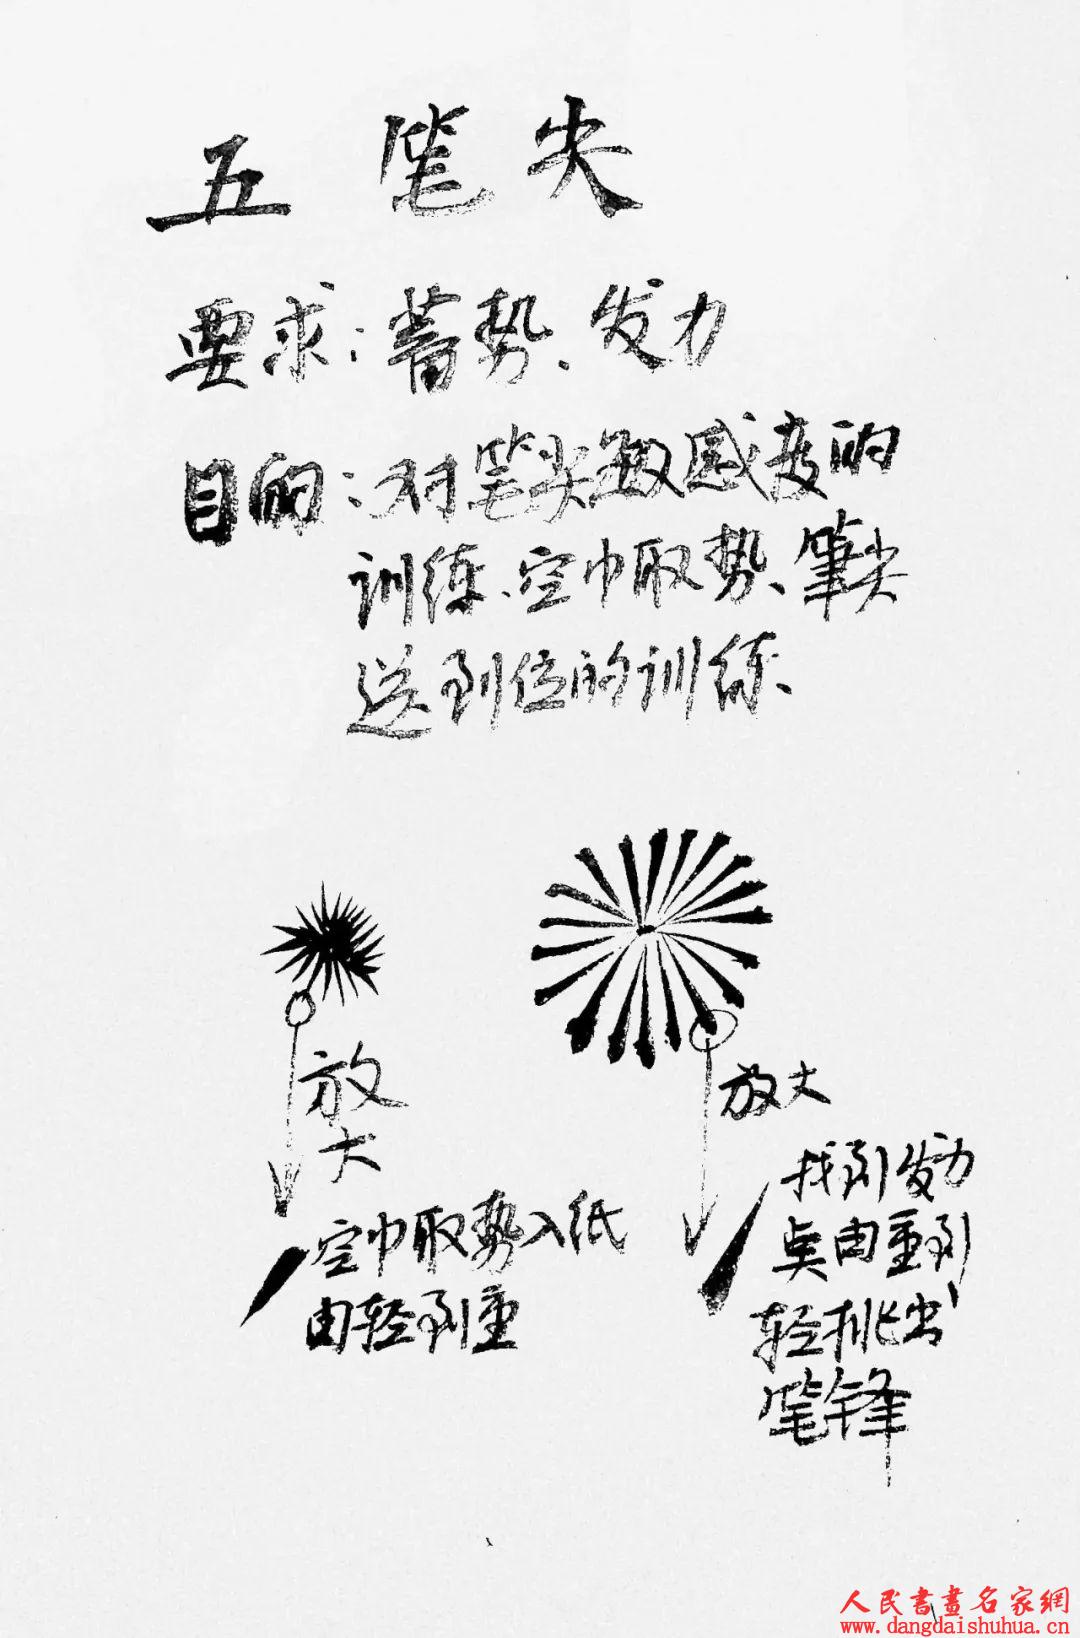 五 笔尖
要求:蓄势、发力
目的:对笔尖敏感度的
训练、空中取势、筆尖
送到位的训练、
放
大
空中取势入纸
由轻到重
放大
找到发力
点由重到
轻挑出
笔锋
人民書畫名家網
www.dangdaishuhua.cn